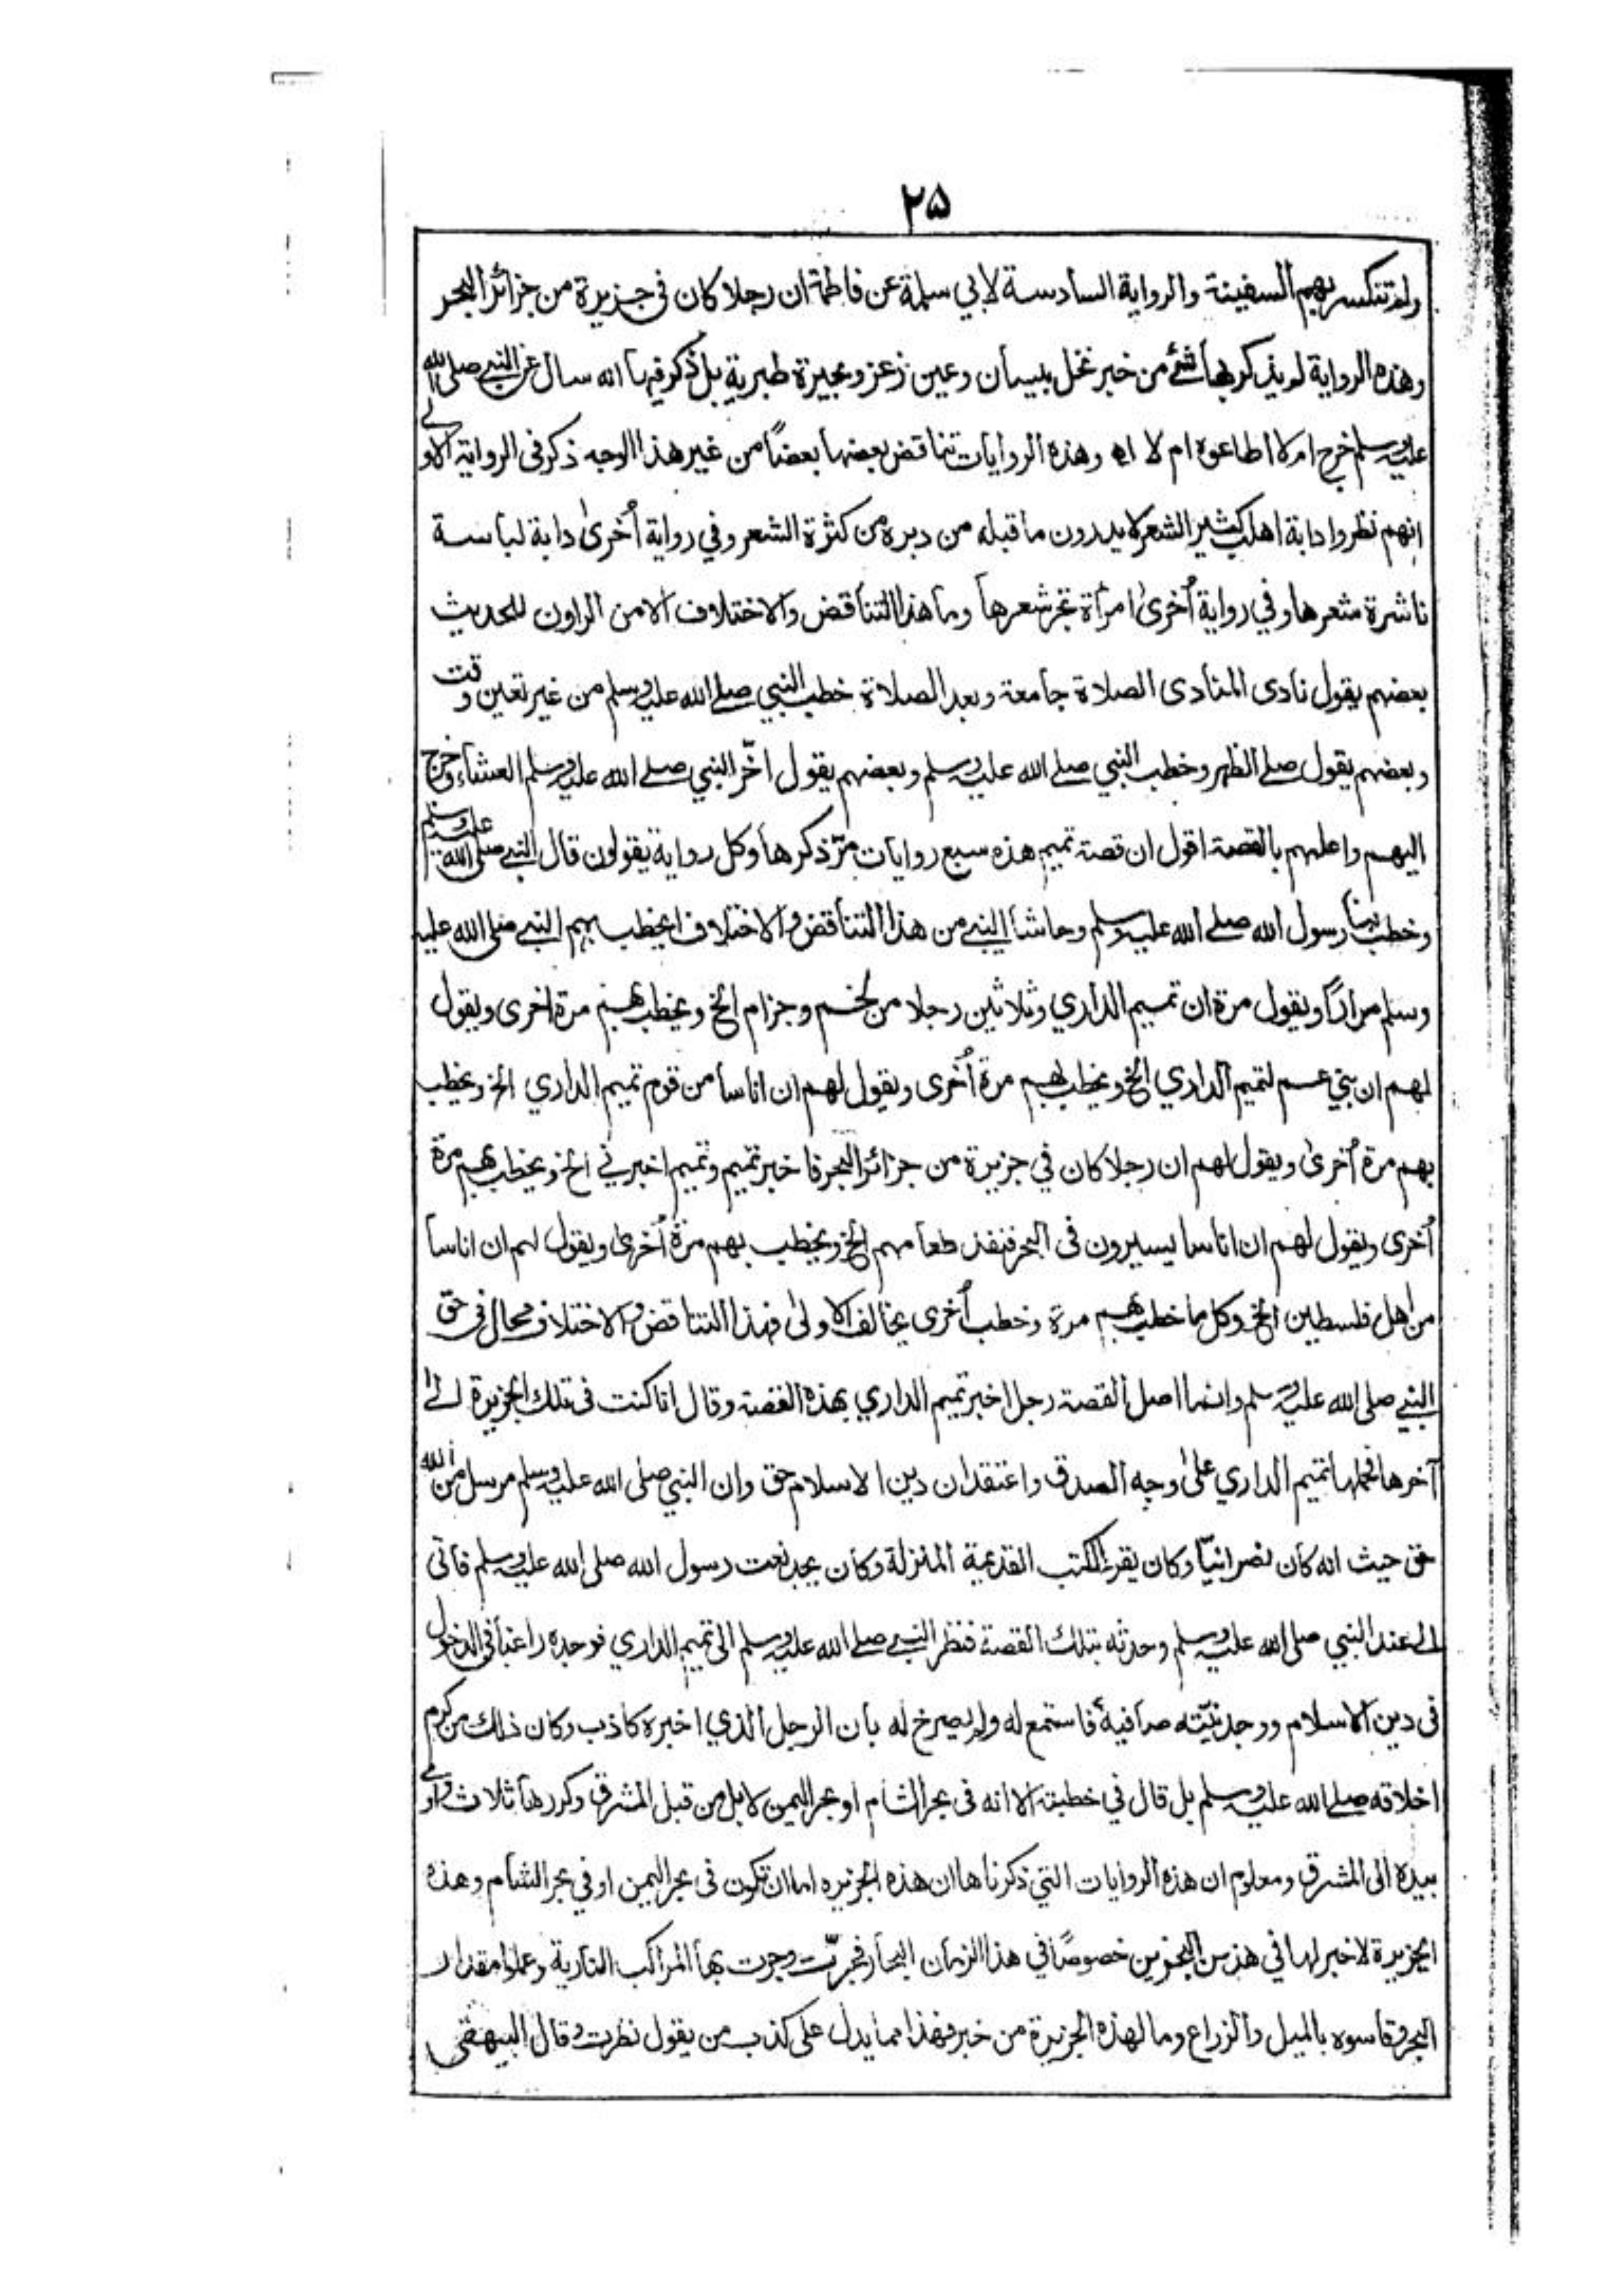 ٢٥
ولم تنكسر بهم السفينة والرواية السادسة لابي سلمة عن فاطمة ان رجلا كان فى جزيرة من جزائر البحر
وهذه الرواية لم يذكر بها شئ من خبر نخل بيسان وعين زغر وبحيرة طبرية بل ذكر فيها انه سال عن النبي صلى الله
عليه وسلم خرج ام لا اطاعوه ام لا اه وهذه الروايات تناقض بعضها بعضاً من غير هذا الوجه ذكر فى الرواية الاولى
انهم نظروا دابة اهلب كثير الشعر لا يدرون ما قبله من دبره من كثرة الشعر وفي رواية أخرىٰ دابة لباسة
ناشرة شعرها وفي رواية أخرىٰ امرأة تجر شعرها وما هذا التناقض والاختلاف الا من الراون للحديث
بعضهم يقول نادى المنادى الصلاة جامعة وبعد الصلاة خطب النبي صلے الله عليه وسلم من غير تعين وقت
وبعضهم يقول صلے الظهر وخطب النبي صلے الله عليه وسلم وبعضهم يقول اخّر النبي صلے الله عليه وسلم العشاء وخرج
اليهم واعلمهم بالقصة اقول ان قصة تميم هذه سبع روايات مرّ ذكرها وكل رواية يقولون قال النبي صلى الله عليه وسلم
وخطب بنا رسول الله صلے الله عليه وسلم وحاشا النبي من هذا التناقض والاختلاف ايخطب بهم النبي صلى الله عليه
وسلم مراراً ويقول مرة ان تميم الداري وثلاثين رجلا من لخم وجزام الخ ويخطب بهم مرة اخرى ويقول
لهم ان بني عم لتميم الداري الخ ويخطب بهم مرة أخرى ويقول لهم ان اناسا من قوم تميم الداري الخ ويخطب
بهم مرة أخرىٰ ويقول لهم ان رجلا كان في جزيرة من جزائر البحر فاخبر تميم وتميم اخبرني الخ ويخطب بهم مرة
أخرى ويقول لهم ان اناسا يسيرون فى البحر فنفذ طعامهم الخ ويخطب بهم مرة أخرىٰ ويقول لهم ان اناسا
من اهل فلسطين الخ وكل ما خطب بهم مرة وخطب أخرى يخالف الاولىٰ فهذا التناقض والاختلاف محال فى حق
النبي صلى الله عليه وسلم وانما اصل القصة رجل اخبر تميم الداري بهذه القصة وقال انا كنت فى تلك الجزيرة الىٰ
آخرها فحملها تميم الداري علىٰ وجه الصدق واعتقد ان دين الاسلام حق وان النبي صلى الله عليه وسلم مرسل من الله
حق حيث انه كان نصرانيّا وكان يقرء الكتب القديمة المنزلة وكان يجد نعت رسول الله صلى الله عليه وسلم فاتى
الى عند النبي صلى الله عليه وسلم وحدثه بتلك القصة فنظر النبي صلے الله عليه وسلم الى تميم الداري فوجده راغباً فى الدخول
فى دين الاسلام ووجد نيّته صافية فاستمع له ولم يصرخ له بان الرجل الذي اخبره كاذب وكان ذلك من كرم
اخلاقه صلے الله عليه وسلم بل قال في خطبته الا انه فى بحر الشام او بحر اليمن لا بل من قبل المشرق وكررها ثلاث واومى
بيده الى المشرق ومعلوم ان هذه الروايات التي ذكرناها ان هذه الجزيره اما ان تكون فى بحر اليمن او في بحر الشام وهذه
الجزيرة لا خبر لها في هذين البحرين خصوصًا في هذا الزمان البحار فجرّت وجرت بها المراكب النارية وعلموا مقدار
البحر وقاسوه بالميل والزراع وما لهذه الجزيرة من خبر فهذا مما يدل على كذب من يقول نظرت وقال البيهقى